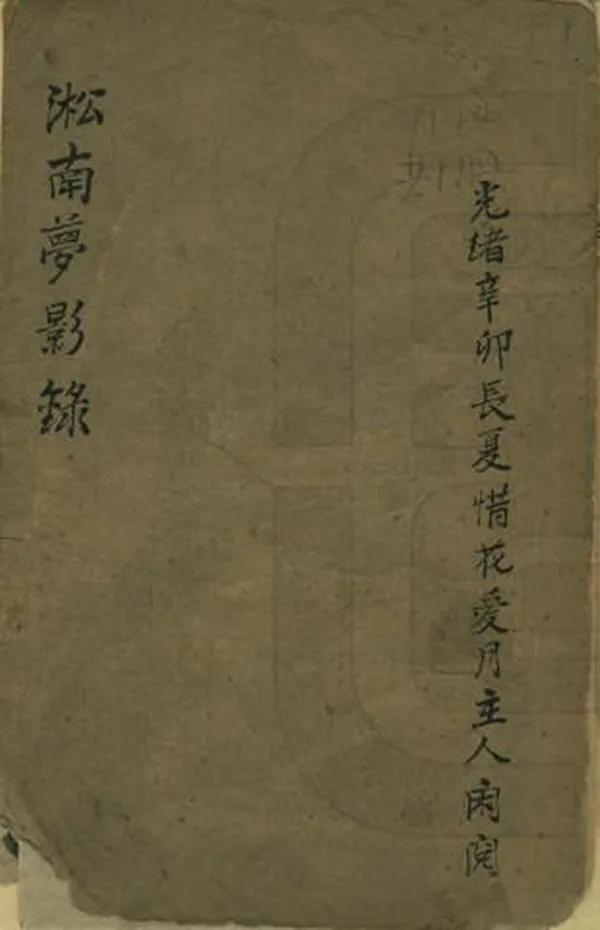 光緒辛卯長夏惜花愛月主人閱
淞南夢影錄